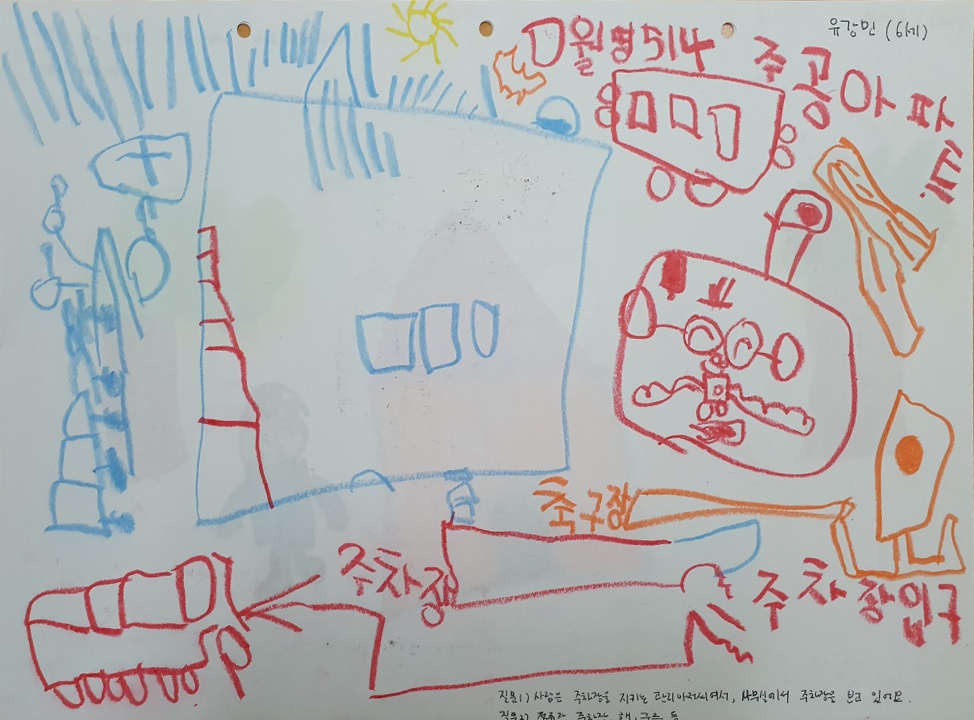 유강민 (6세)
월명514 주공아파트
축구장
주차장
주차장입구
질문1) 사람은 주차장을 지키는 관리아저씨여서, 사무실에서 주차장을 보고 있어요.
질문2) 주차장